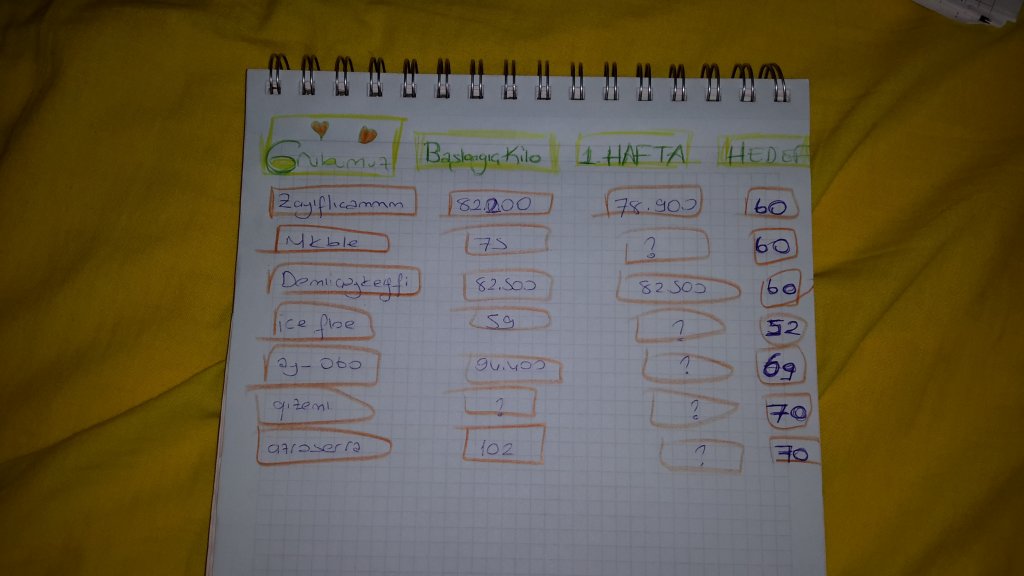 Grubumuz Başlangıç Kilo 1.HAFTA HEDEF
Zayıflıcammm 82.200 78.900 60
Mkble 75 ? 60
Demlicaykeyfi 82.500 82.500 60
ice fbe 59 ? 52
ay-obo 94.400 ? 69
gizemi ? ? 70
azraserra 102 ? 70